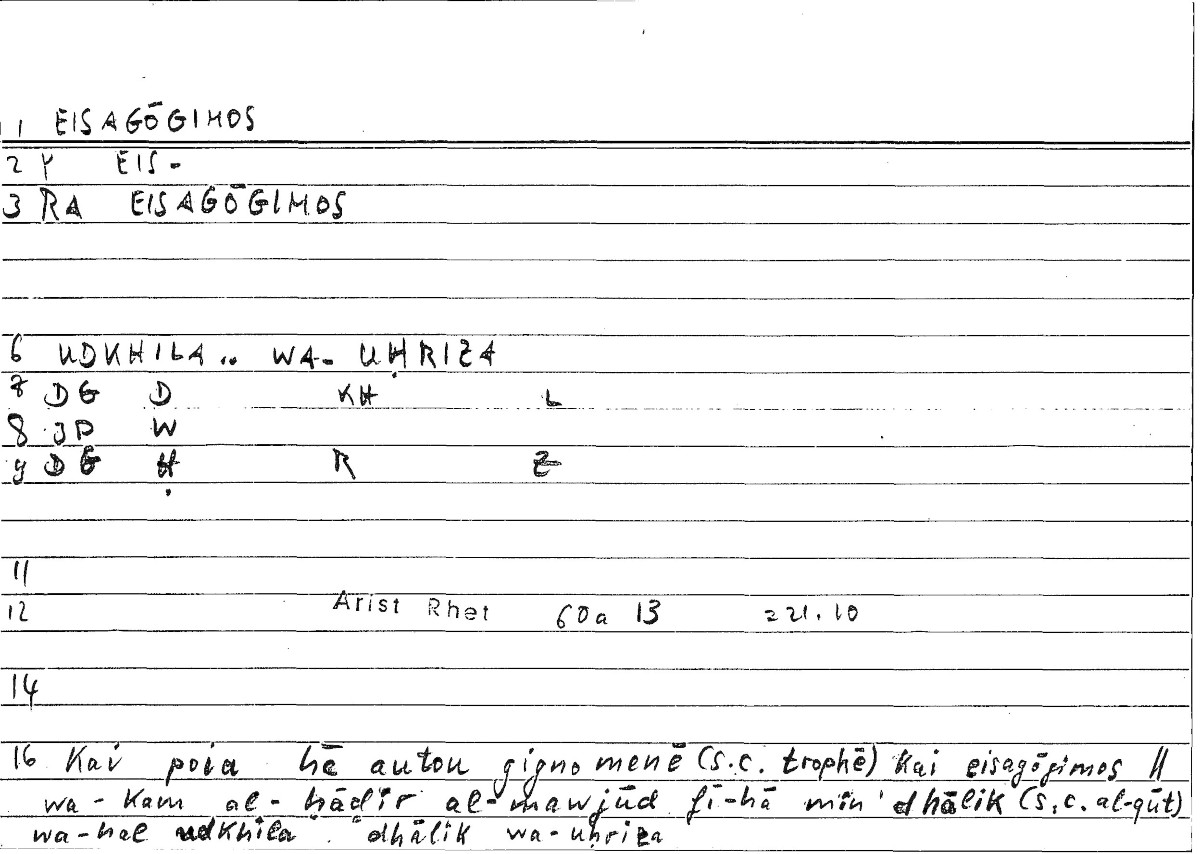 11 EISAGŌGIMOS
2 Y EIS-
3 RA EISAGŌGIMOS
6 UDKHILA.. WA- UḤRIZA
7 DG D KH L
8 JP W
9 DG Ḥ R Z
11
12 Arist Rhet 60a 13 221.10
14
16 Kai poia hē autou gignomenē (s.c. trophē) kai eisagōgimos //
wa-kam al-ḥāḍir al-mawjūd fī-hā min dhālik (s.c. al-qūt)
wa-hal udkhila dhālik wa-uḥriza